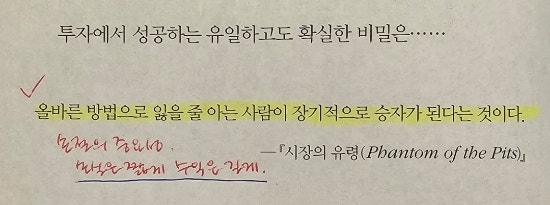 투자에서 성공하는 유일하고도 확실한 비밀은……
올바른 방법으로 잃을 줄 아는 사람이 장기적으로 승자가 된다는 것이다.
손절의 중요성.
손실은 짧게 수익은 길게.
—『시장의 유령(Phantom of the Pits)』